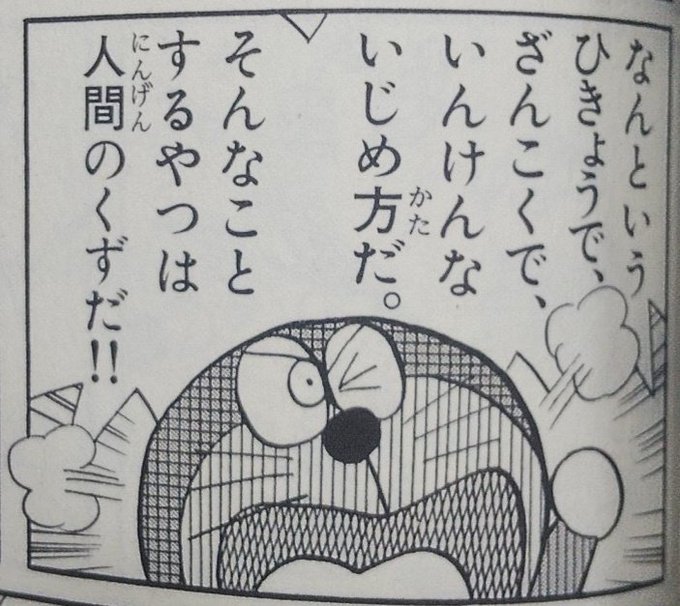 なんという
ひきょうで、
ざんこくで、
いんけんな
いじめ方だ。
かた
そんなこと
するやつは
人間のくずだ!!
にんげん